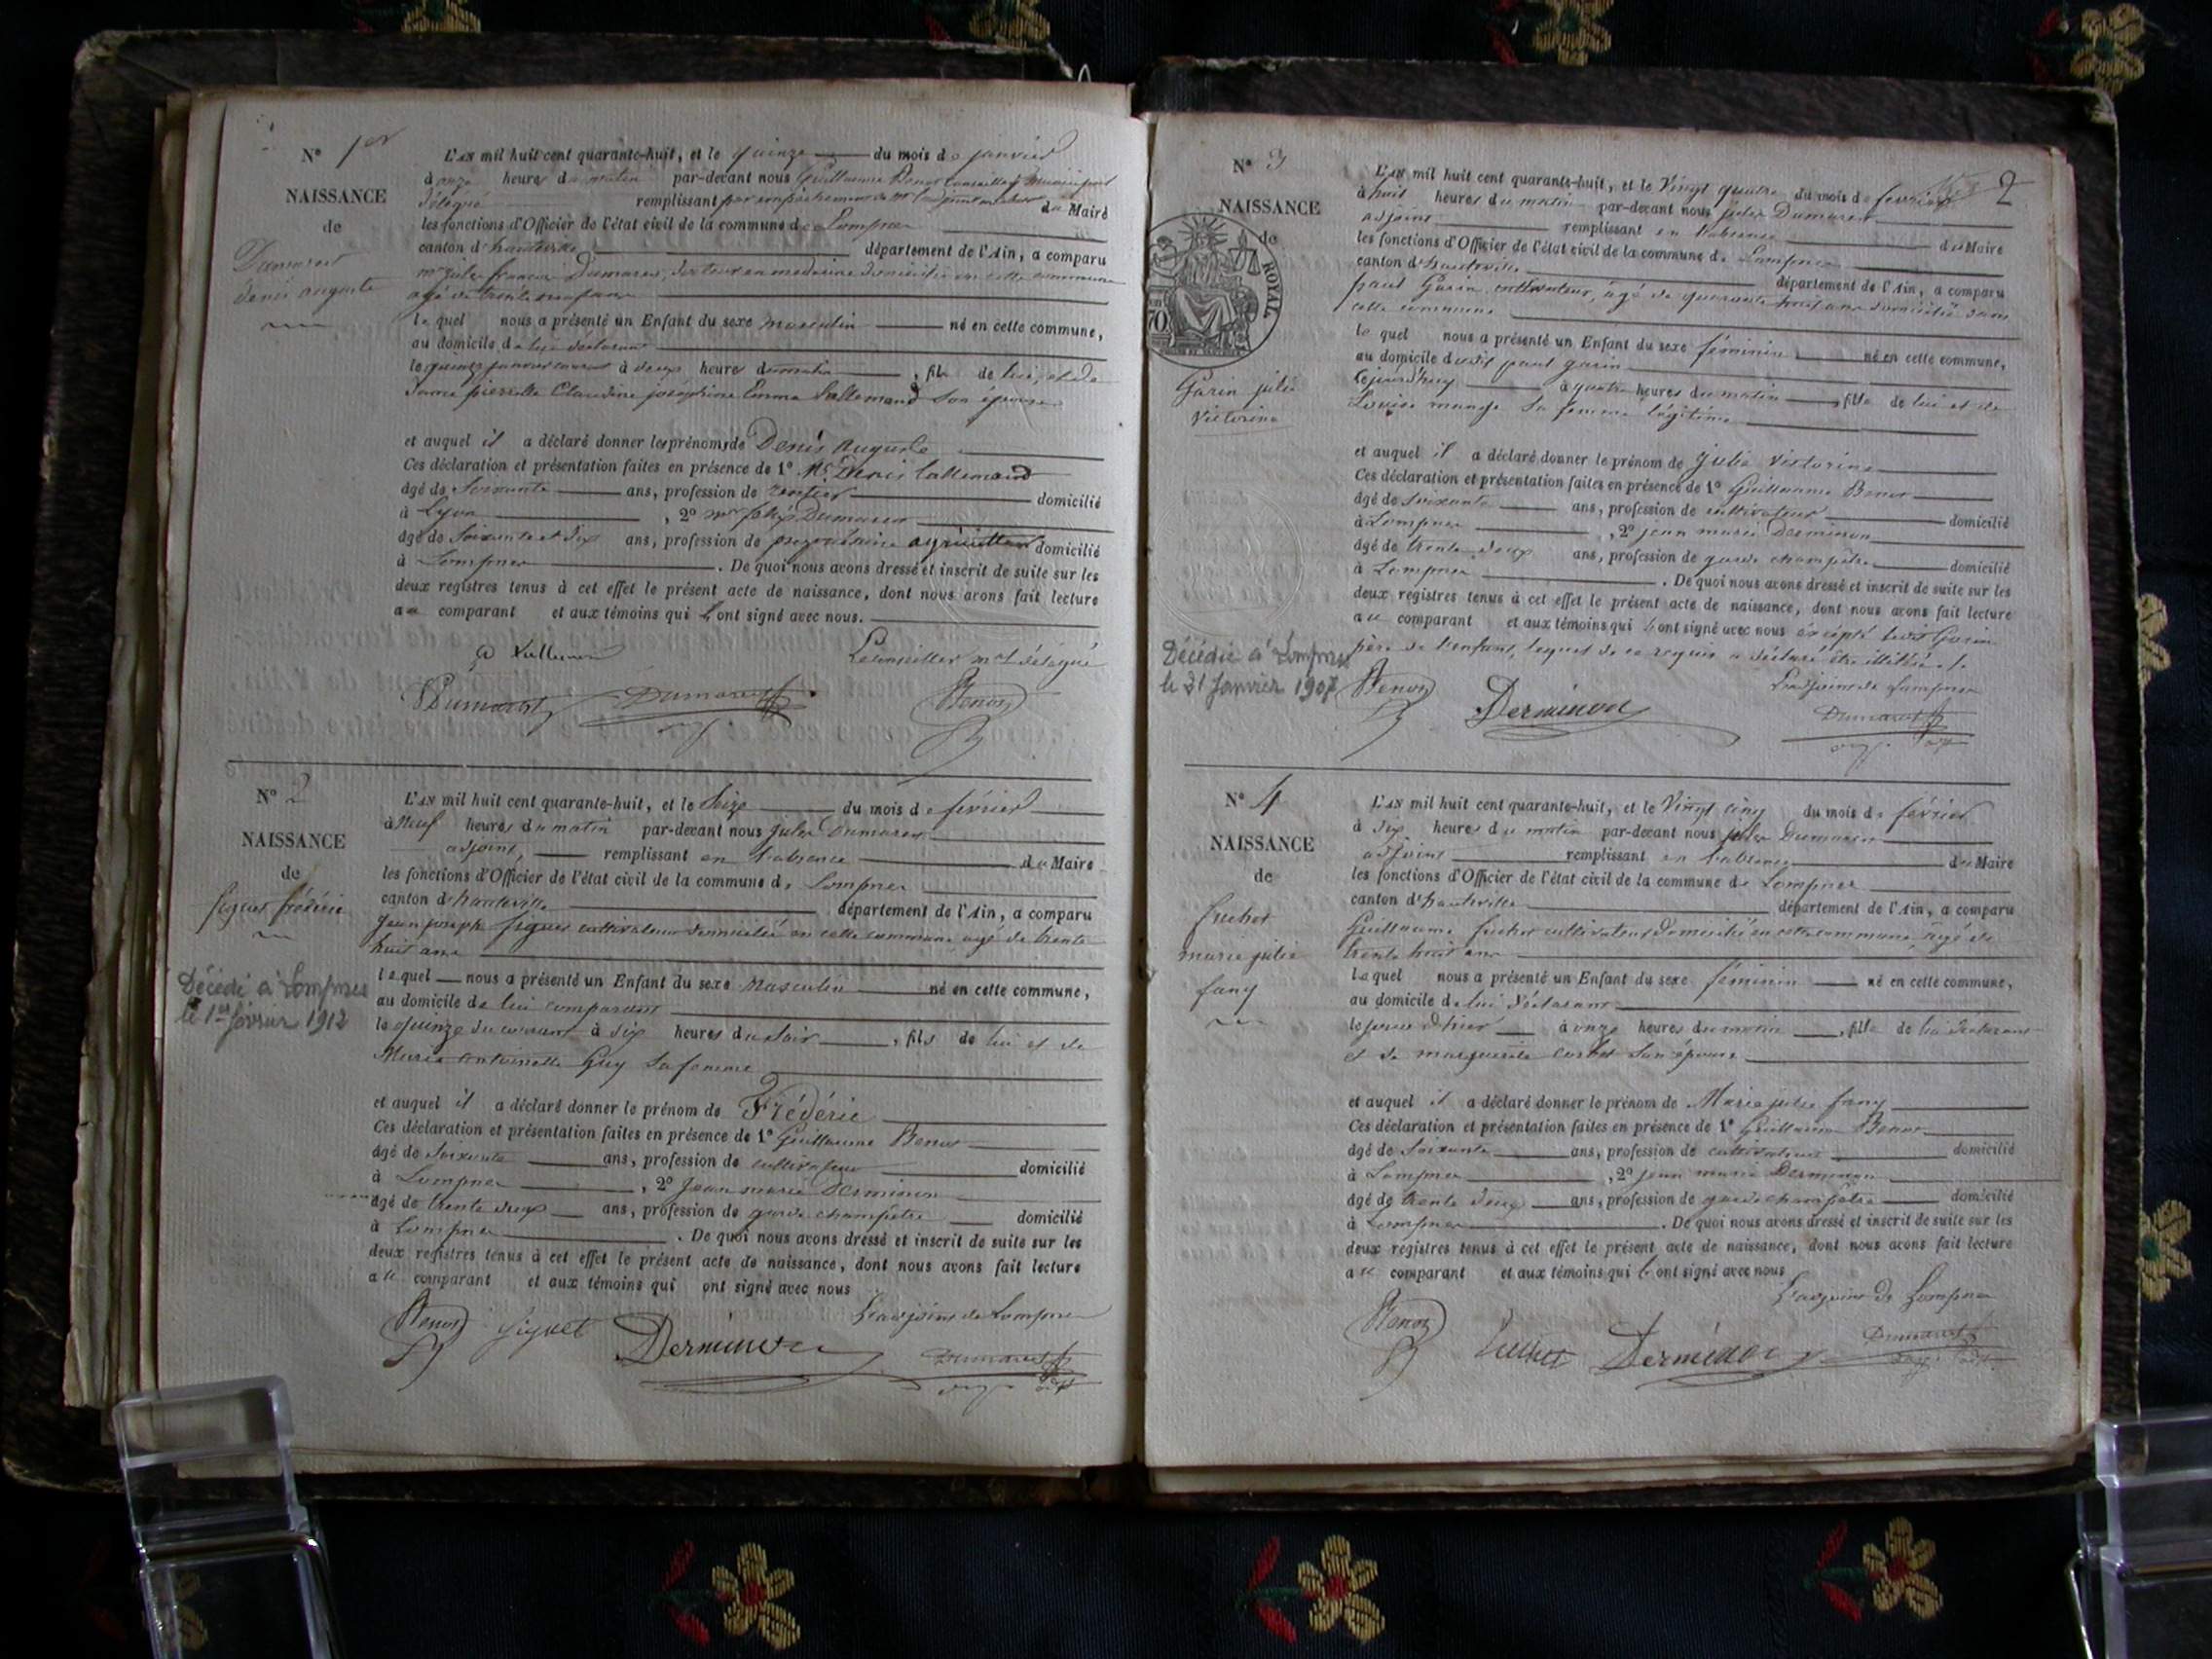 N° 1er
NAISSANCE
de
Dumarest
denis auguste
L'AN mil huit cent quarante-huit, et le quinze du mois de janvier
à onze heures du matin par-devant nous Guillaume Benoz Conseiller municipal
délégué remplissant par empêchement de Mr l'adjoint du Maire
les fonctions d'Officier de l'état civil de la commune de Lompnes
canton d'hauteville département de l'Ain, a comparu
mr jules francois Dumarest, docteur en medecine domicilié en cette commune
agé de trente neuf ans
lequel nous a présenté un Enfant du sexe masculin né en cette commune,
au domicile de lui déclarant
le quinze janvier courant à deux heures du matin, fils de lui, et de
dame pierrette Claudine joséphine Emma Lallemand son épouse
et auquel il a déclaré donner les prénoms de Denis Auguste
Ces déclaration et présentation faites en présence de 1° Mr. Denis Lallemand
âgé de Soixante ans, profession de rentier domicilié
à Lyon, 2° mr Dumarest
âgé de Soixante et dix ans, profession de propriétaire agriculteur domicilié
à Lompnes. De quoi nous avons dressé et inscrit de suite sur les
deux registres tenus à cet effet le présent acte de naissance, dont nous avons fait lecture
au comparant et aux témoins qui l'ont signé avec nous.
D Lallemand Le conseiller mal délégué
Dumarest Dumarest Benoz
N° 2
NAISSANCE
de
figuet frédéric
Décédé à Lompnes
le 1er février 1912
L'AN mil huit cent quarante-huit, et le Seize du mois de février
à Neuf heures du matin par-devant nous jules Dumarest
adjoint, remplissant en l'absence du Maire
les fonctions d'Officier de l'état civil de la commune de Lompnes
canton d'hauteville département de l'Ain, a comparu
Jean joseph figuet cultivateur domicilié en cette commune agé de trente
huit ans
lequel nous a présenté un Enfant du sexe Masculin né en cette commune,
au domicile de lui comparant
le quinze du courant à dix heures du soir, fils de lui et de
Marie Antoinette Guy sa femme
et auquel il a déclaré donner le prénom de Frédéric
Ces déclaration et présentation faites en présence de 1° Guillaume Benoz
âgé de Soixante ans, profession de cultivateur domicilié
à Lompnes, 2° Jean marie Derminon
âgé de trente deux ans, profession de garde champêtre domicilié
à Lompnes. De quoi nous avons dressé et inscrit de suite sur les
deux registres tenus à cet effet le présent acte de naissance, dont nous avons fait lecture
au comparant et aux témoins qui ont signé avec nous
L'adjoint de Lompnes
Benoz figuet Derminon Dumarest
2
N° 3
NAISSANCE
de
ROYAL
70
Garin julie
Victorine
Décédée à Lompnes
le 31 Janvier 1907
L'AN mil huit cent quarante-huit, et le Vingt quatre du mois de février
à huit heures du matin par-devant nous jules Dumarest
adjoint remplissant en l'absence du Maire
les fonctions d'Officier de l'état civil de la commune de Lompnes
canton d'hauteville département de l'Ain, a comparu
paul Garin cultivateur, agé de quarante huit ans domicilié dans
cette commune
lequel nous a présenté un Enfant du sexe féminin né en cette commune,
au domicile dudit paul garin
cejourd'huy à quatre heures du matin, fille de lui et de
Louise sa femme légitime
et auquel il a déclaré donner le prénom de julie victorine
Ces déclaration et présentation faites en présence de 1° Guillaume Benoz
âgé de soixante ans, profession de cultivateur domicilié
à Lompnes, 2° jean marie Derminon
âgé de trente deux ans, profession de garde champêtre domicilié
à Lompnes. De quoi nous avons dressé et inscrit de suite sur les
deux registres tenus à cet effet le présent acte de naissance, dont nous avons fait lecture
au comparant et aux témoins qui l'ont signé avec nous excépté ledit Garin
père de l'enfant, lequel de ce requis a déclaré être illitéré
L'adjoint de Lompnes
Benoz Derminon Dumarest
N° 4
NAISSANCE
de
marie julie
fany
L'AN mil huit cent quarante-huit, et le Vingt cinq du mois de février
à dix heures du matin par-devant nous jules Dumarest
adjoint remplissant en l'absence du Maire
les fonctions d'Officier de l'état civil de la commune de Lompnes
canton d'hauteville département de l'Ain, a comparu
Guillaume cultivateur domicilié en cette commune, agé de
trente huit ans
lequel nous a présenté un Enfant du sexe féminin né en cette commune,
au domicile de lui déclarant
le jour d'hier à onze heures du matin, fille de lui déclarant
et de marguerite son épouse
et auquel il a déclaré donner le prénom de Marie julie fany
Ces déclaration et présentation faites en présence de 1° Guillaume Benoz
âgé de Soixante ans, profession de cultivateur domicilié
à Lompnes, 2° jean marie Derminon
âgé de trente deux ans, profession de garde champêtre domicilié
à Lompnes. De quoi nous avons dressé et inscrit de suite sur les
deux registres tenus à cet effet le présent acte de naissance, dont nous avons fait lecture
au comparant et aux témoins qui l'ont signé avec nous
L'adjoint de Lompnes
Benoz Derminon Dumarest